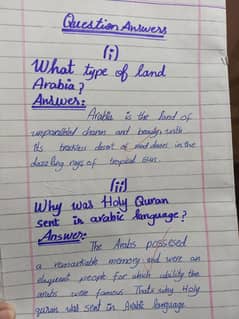 Question Answers
(i)
What type of land
Arabia?
Answer:
Arabia is the land of
unparalleled charm and beauty with
its trackless desert of sand dunes in the
dazzling rays of tropical sun.
(ii)
Why was Holy Quran
sent in arabic language?
Answer
The Arabs possesed
a remarkable memory and were an
eloquent people for which ability the
arabs were famous. That's why Holy
quran was sent in Arabic language.